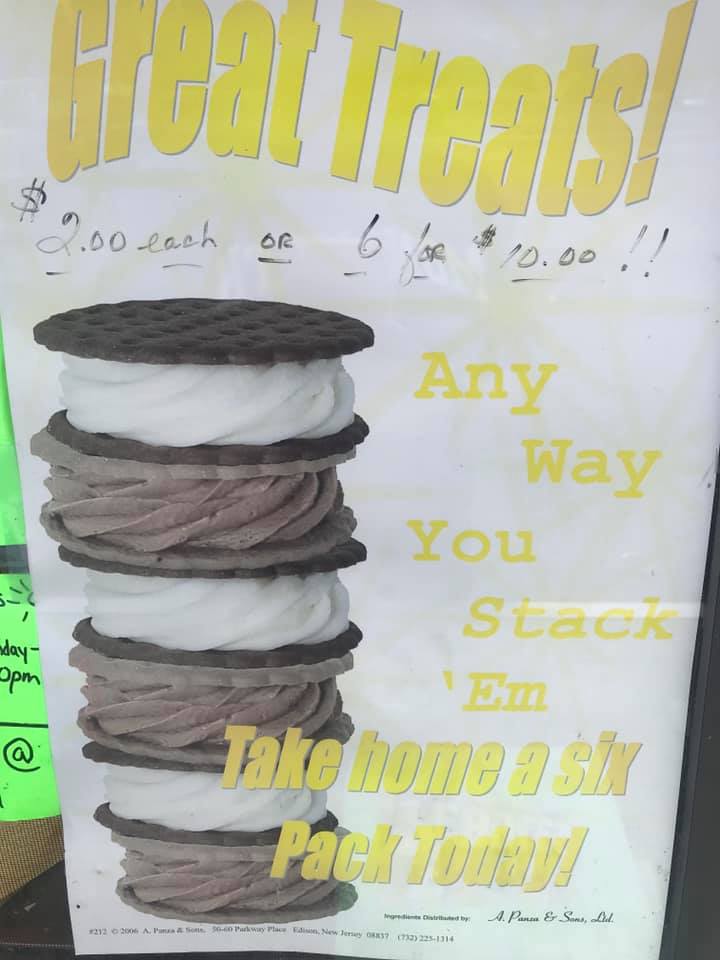 Great Treats!
$2.00 each OR 6 for $10.00!!
Any
Way
You
Stack
'Em
Take home a six
Pack Today!
day-
0pm
@
Ingredients Distributed by: A. Panza & Sons, Ltd.
#212 © 2006 A. Panza & Sons, 50-60 Parkway Place Edison, New Jersey 08837 (732) 225-1314